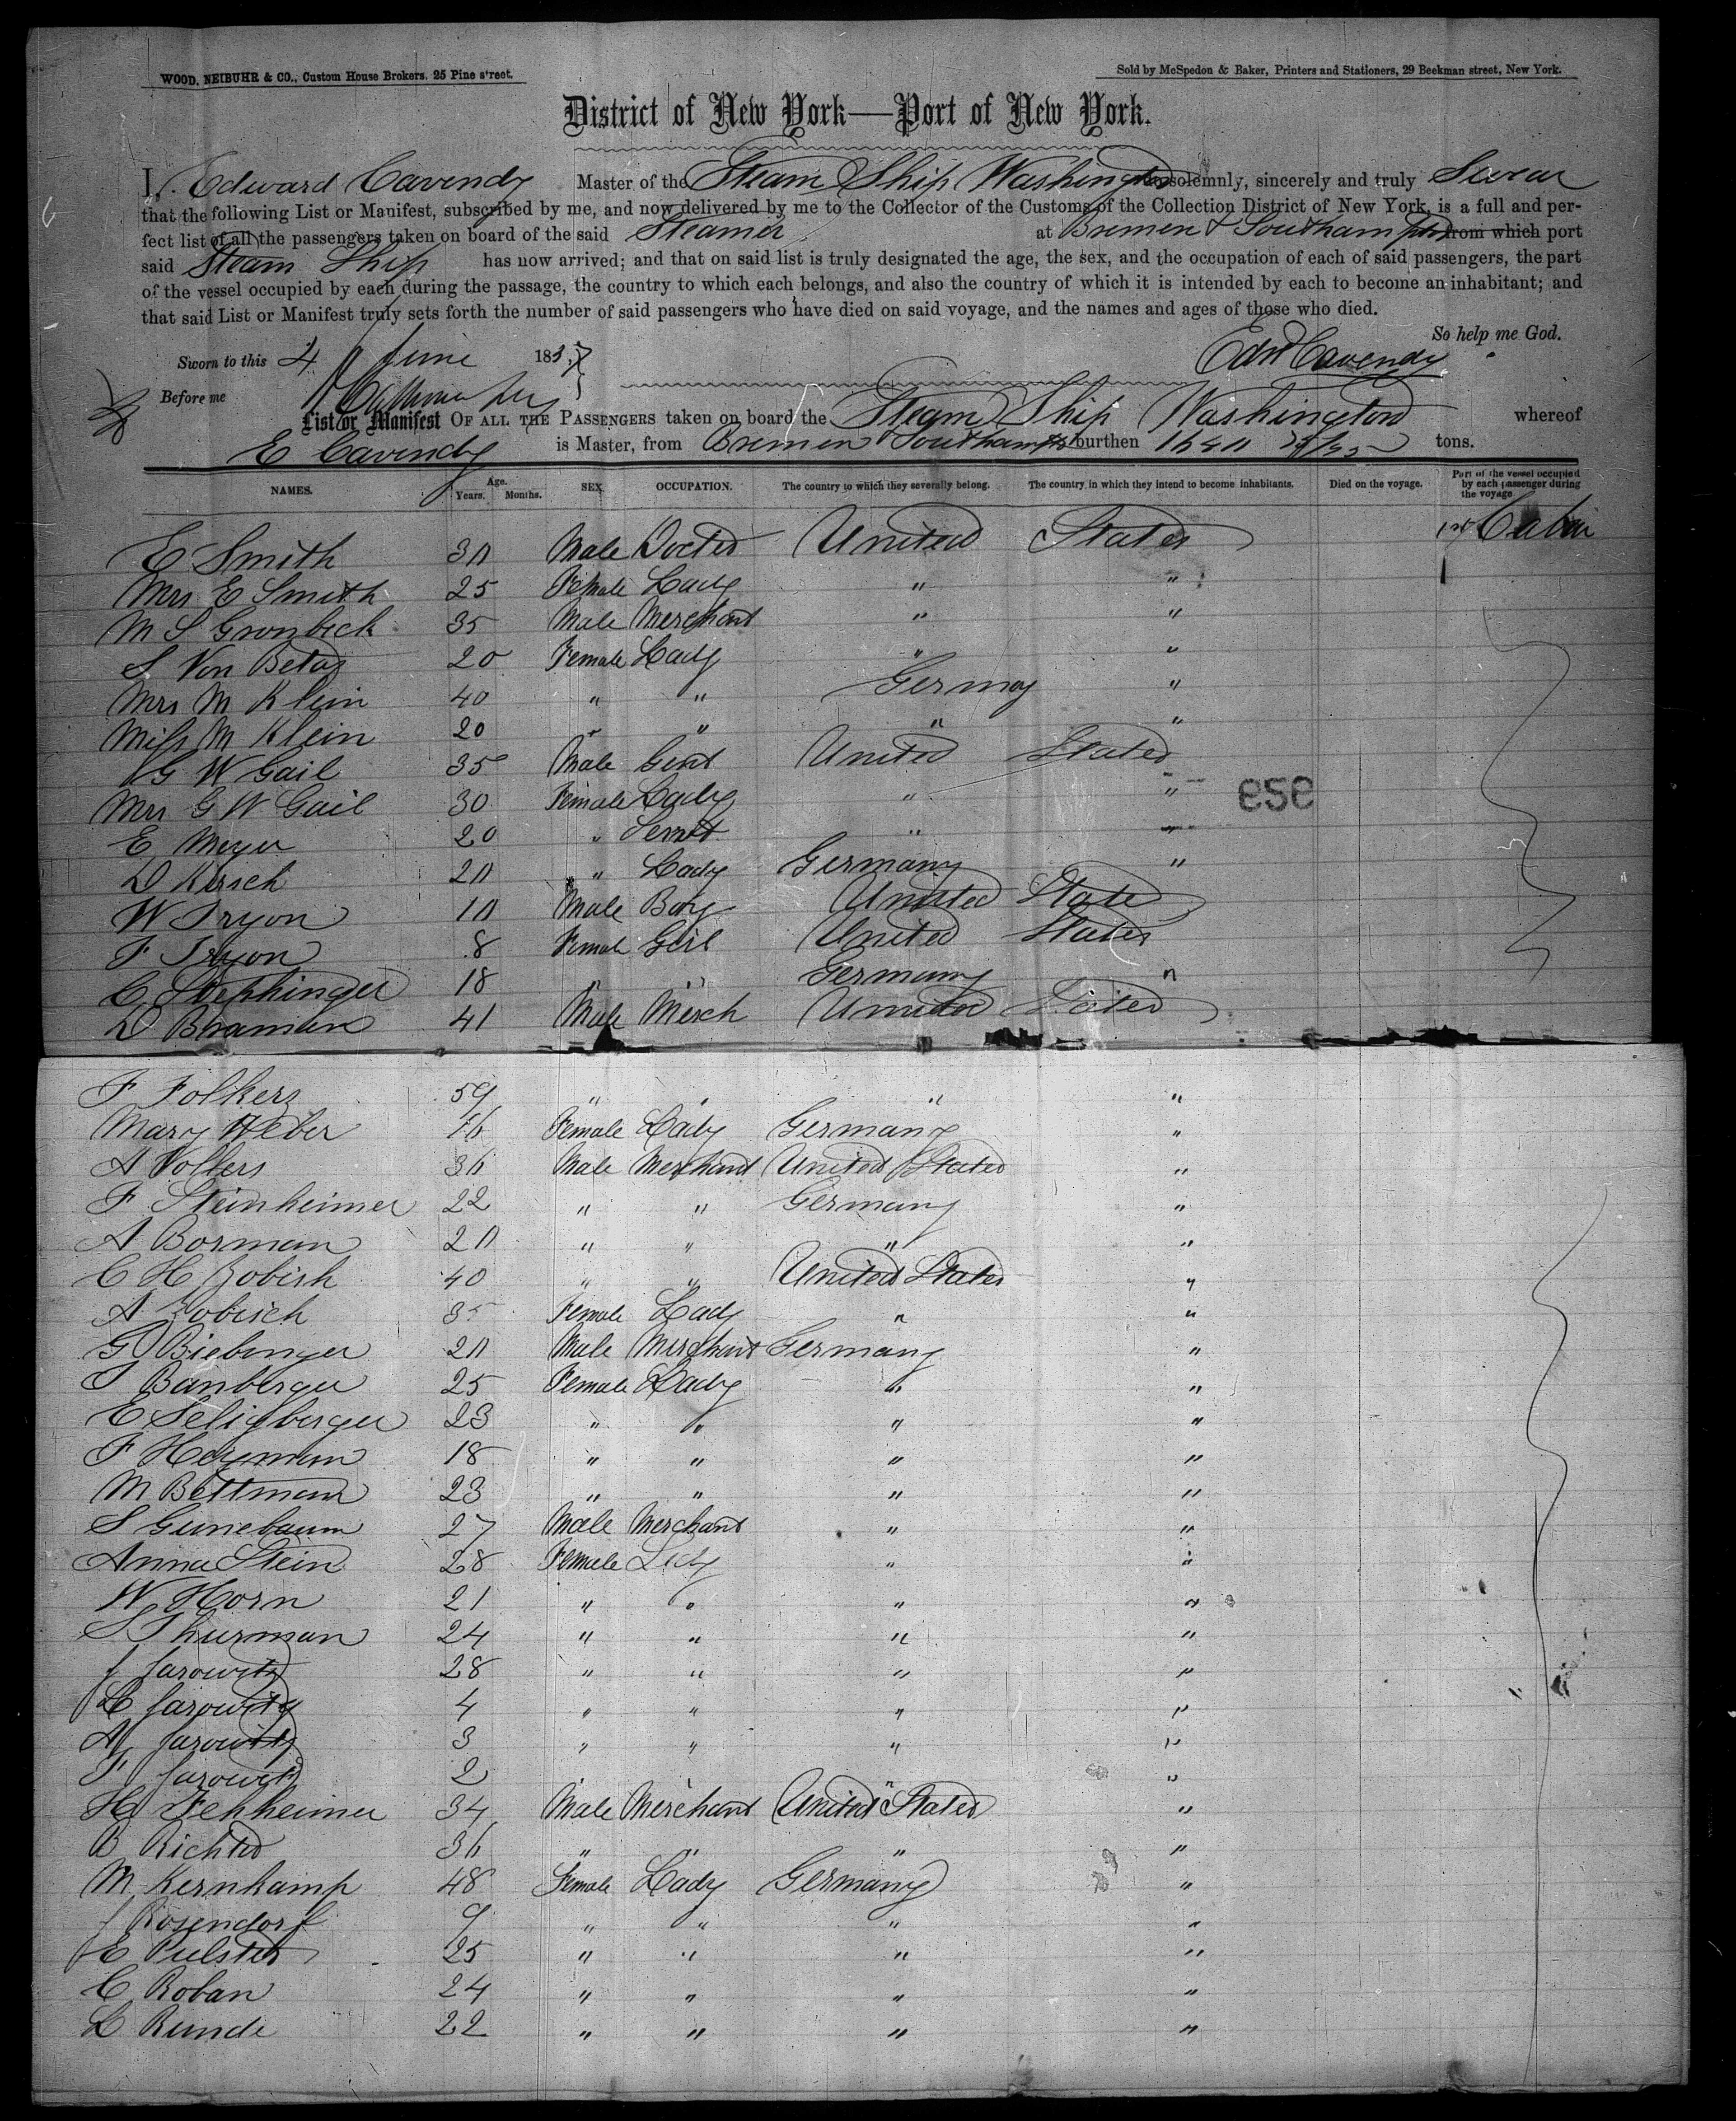 WOOD, NEIBUHR & CO., Custom House Brokers, 25 Pine street.
Sold by McSpedon & Baker, Printers and Stationers, 29 Beekman street, New York.
District of New York—Port of New York.
I, Edward Cavendy Master of the Steam Ship Washington do solemnly, sincerely and truly Swear
that the following List or Manifest, subscribed by me, and now delivered by me to the Collector of the Customs of the Collection District of New York, is a full and per-
fect list of all the passengers taken on board of the said Steamer at Bremen & Southampton from which port
said Steam Ship has now arrived; and that on said list is truly designated the age, the sex, and the occupation of each of said passengers, the part
of the vessel occupied by each during the passage, the country to which each belongs, and also the country of which it is intended by each to become an inhabitant; and
that said List or Manifest truly sets forth the number of said passengers who have died on said voyage, and the names and ages of those who died.
So help me God.
Sworn to this 4 June 1857
Edw Cavendy
Before me
List or Manifest OF ALL THE PASSENGERS taken on board the Steam Ship Washington whereof
E Cavendy is Master, from Bremen & Southampton burthen tons.
NAMES. Age. Years. Months. SEX. OCCUPATION. The country to which they severally belong. The country in which they intend to become inhabitants. Died on the voyage. Part of the vessel occupied by each passenger during the voyage
E Smith 30 Male Doctor United States 1st Cabin
Mrs E Smith 25 Female Lady " "
M S Gronbeck 35 Male Merchant " "
S Von Betaz 20 Female Lady " "
Mrs M Klein 40 " " Germany "
Miss M Klein 20 " " " "
G W Gail 35 Male Gent United States
Mrs G W Gail 30 Female Lady " "
959
E Meyer 20 " Servt " "
D Kirsch 20 " Lady Germany "
W Tryon 10 Male Boy United State
F Tryon 8 Female Girl United States
C Stephinger 18 " " Germany "
D Braman 41 Male Merch United States
F Folkers 59 " " " "
Mary Weber 16 Female Lady Germany "
A Vollers 36 Male Merchant United States "
F Steinheimer 22 " " Germany "
A Borman 20 " " " "
C H Zobish 40 " " United States "
A Zobisch 35 Female Lady " "
G Biebinger 20 Male Merchant Germany "
S Banberger 25 Female Lady " "
E Seligberger 23 " " " "
F Heyman 18 " " " "
M Bettman 23 " " " "
S Gunebaum 27 Male Merchant " "
Anna Stein 28 Female Lady " "
W Horn 21 " " " "
S Thurman 24 " " " "
J Jarowitz 28 " " " "
L Jarowitz 4 " " " "
A Jarowitz 3 " " " "
F Jarowitz 2 " " " "
H Fehheimer 34 Male Merchant United States "
B Richter 36 " " " "
M Kernkamp 48 Female Lady Germany "
J Rosendorf 9 " " " "
E Pulster 25 " " " "
C Roban 24 " " " "
L Runde 22 " " " "